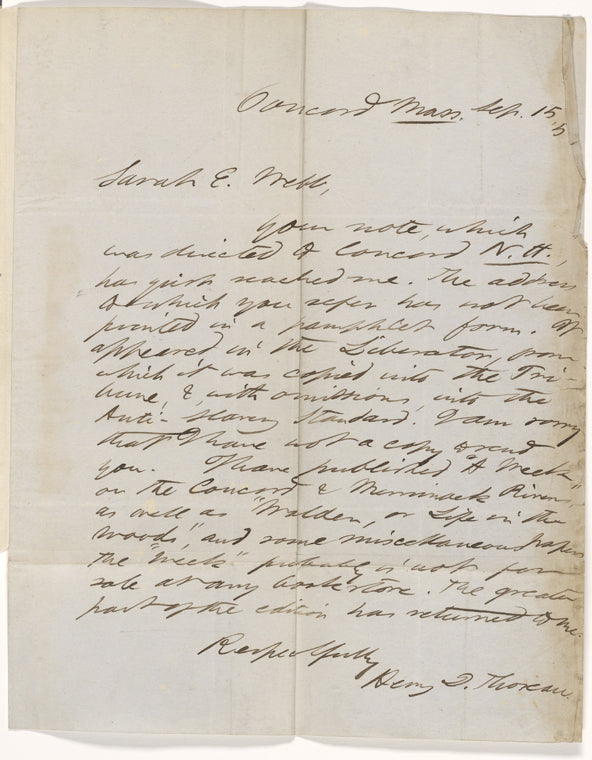 Concord Mass. Sep. 15,
Sarah E. Webb,
Your note, which
was directed to Concord N. H.,
has just reached me. The address
to which you refer has not been
printed in a pamphlet form. It
appeared in the Liberator, from
which it was copied into the Tri-
bune, &, with omissions, into the
Anti-Slavery Standard. I am sorry
that I have not a copy to send
you. I have published "A Week
on the Concord & Merrimack Rivers,"
as well as "Walden, or Life in the
Woods," and some miscellaneous papers
The "Week" probably is not for
sale at any bookstore. The greater
part of the edition has returned to me.
Respectfully
Henry D. Thoreau.